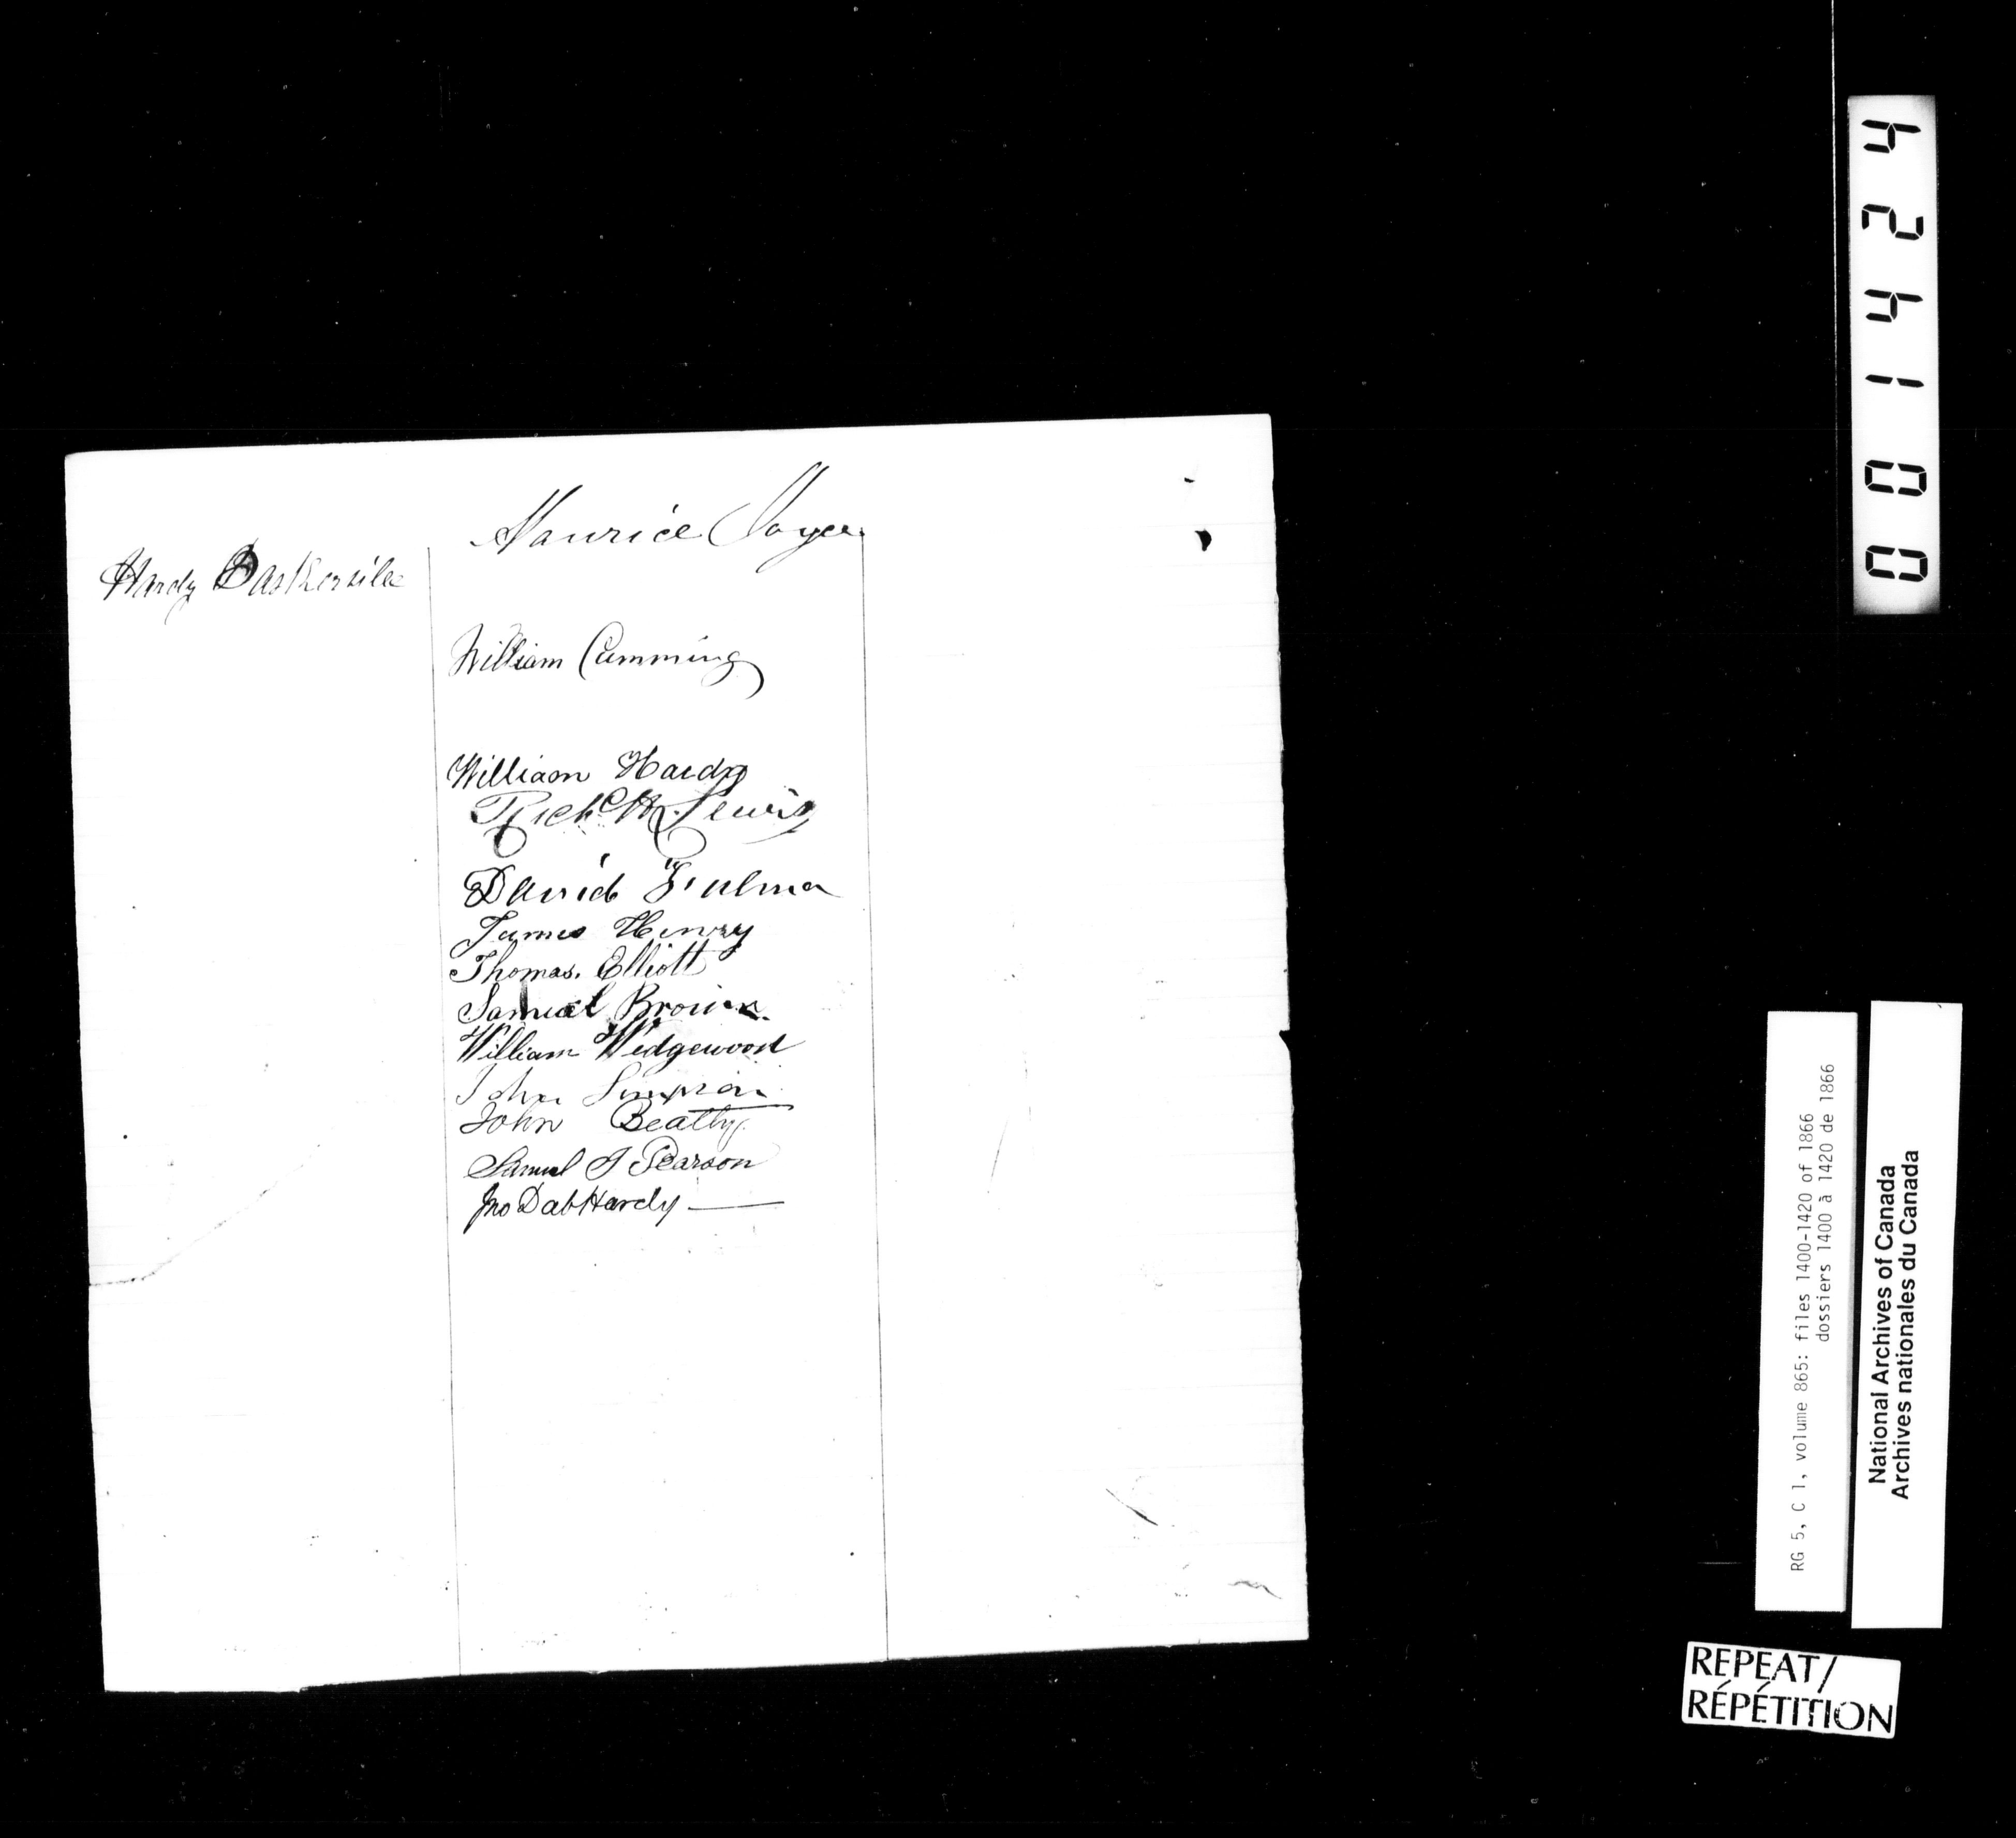 Maurice Joyce
Hardy Baskervile
William Cumming
William Hardy
Richd H. Lewis
David
James Henry
Thomas. Elliott
Samuel Brown
William Wedgewood
John Simpson
John Beatty
Samuel J Pearson
Jno Dab Hardy
001424
RG 5, C 1, volume 865: files 1400-1420 of 1866
dossiers 1400 à 1420 de 1866
National Archives of Canada
Archives nationales du Canada
REPEAT/
RÉPÉTITION